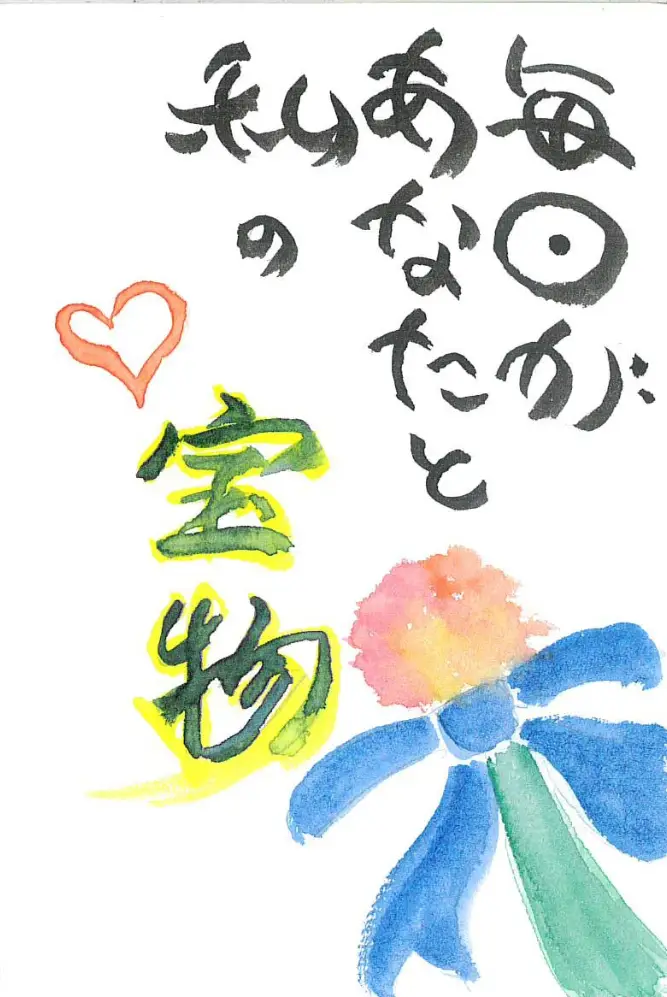 毎日が
あなたと
私の
宝物